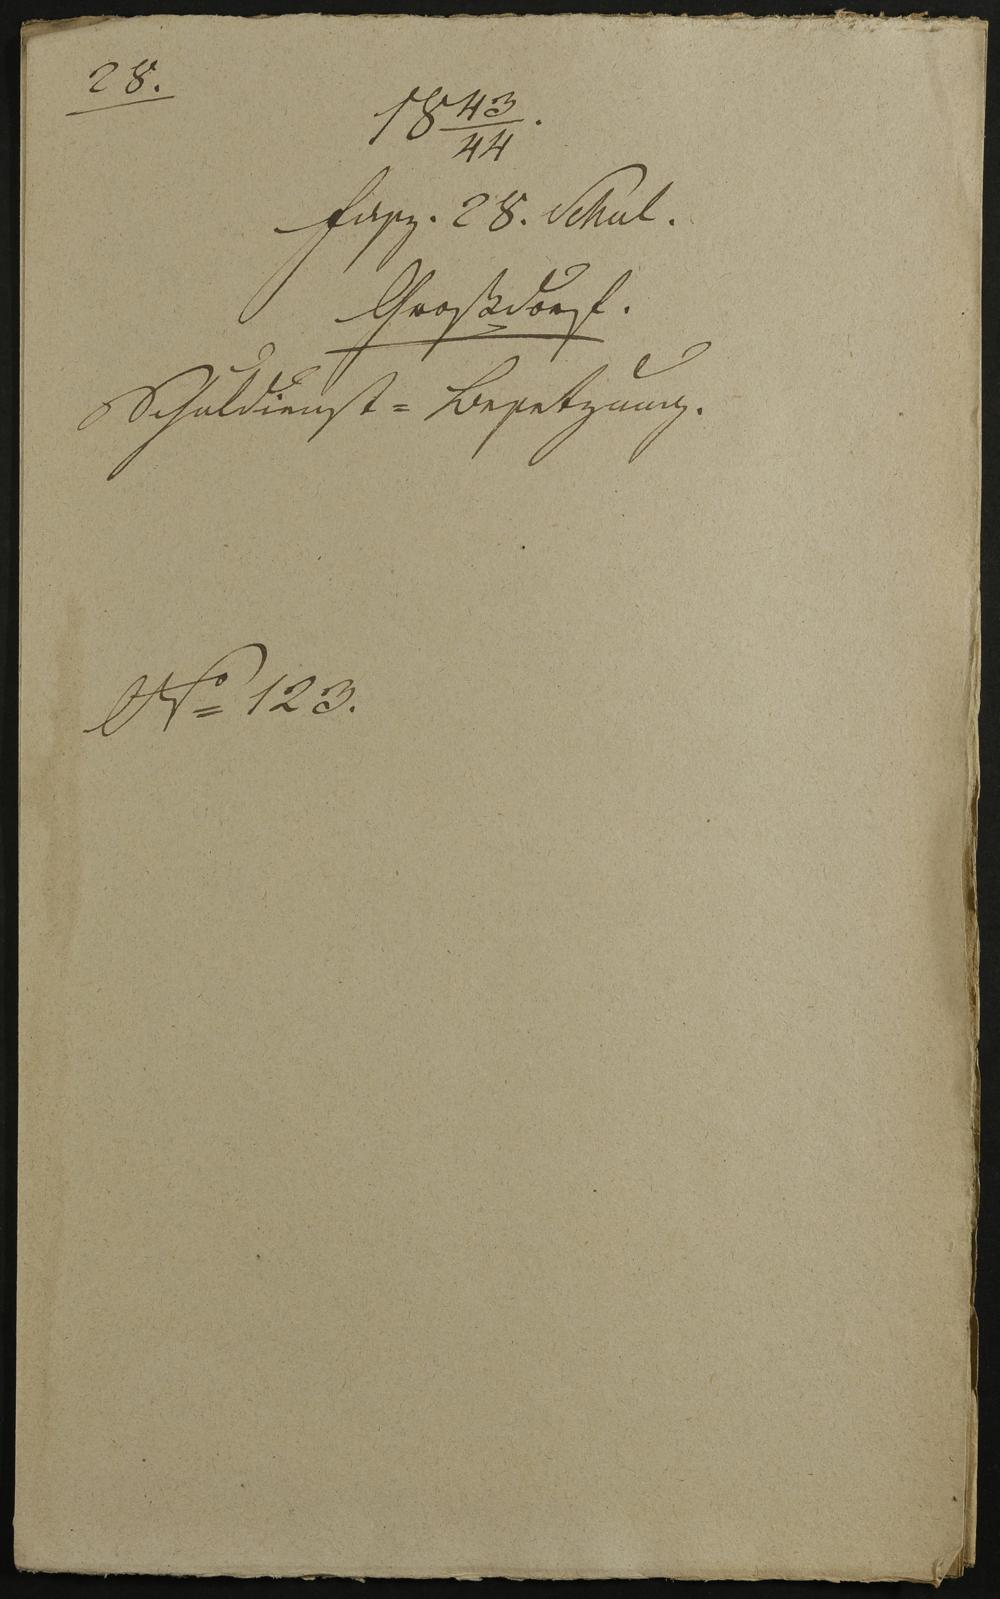 28.
18 43/44.
Fasz. 28. Schul.
Großdorf.
Schuldienst = Besetzung.
No 123.